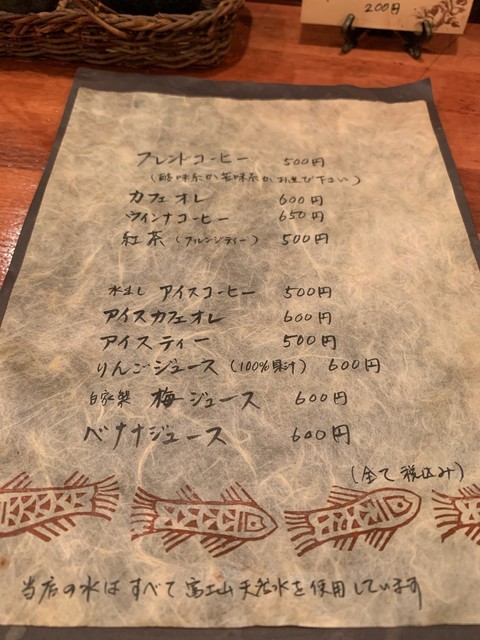 200円
ブレンドコーヒー 500円
(酸味系か苦味系かお選び下さい)
カフェオレ 600円
ウインナコーヒー 650円
紅茶 (ダージリンティー) 500円
水出し アイスコーヒー 500円
アイスカフェオレ 600円
アイスティー 500円
りんごジュース (100%果汁) 600円
自家製 梅ジュース 600円
バナナジュース 600円
(全て税込み)
当店の水はすべて富士山天然水を使用しています